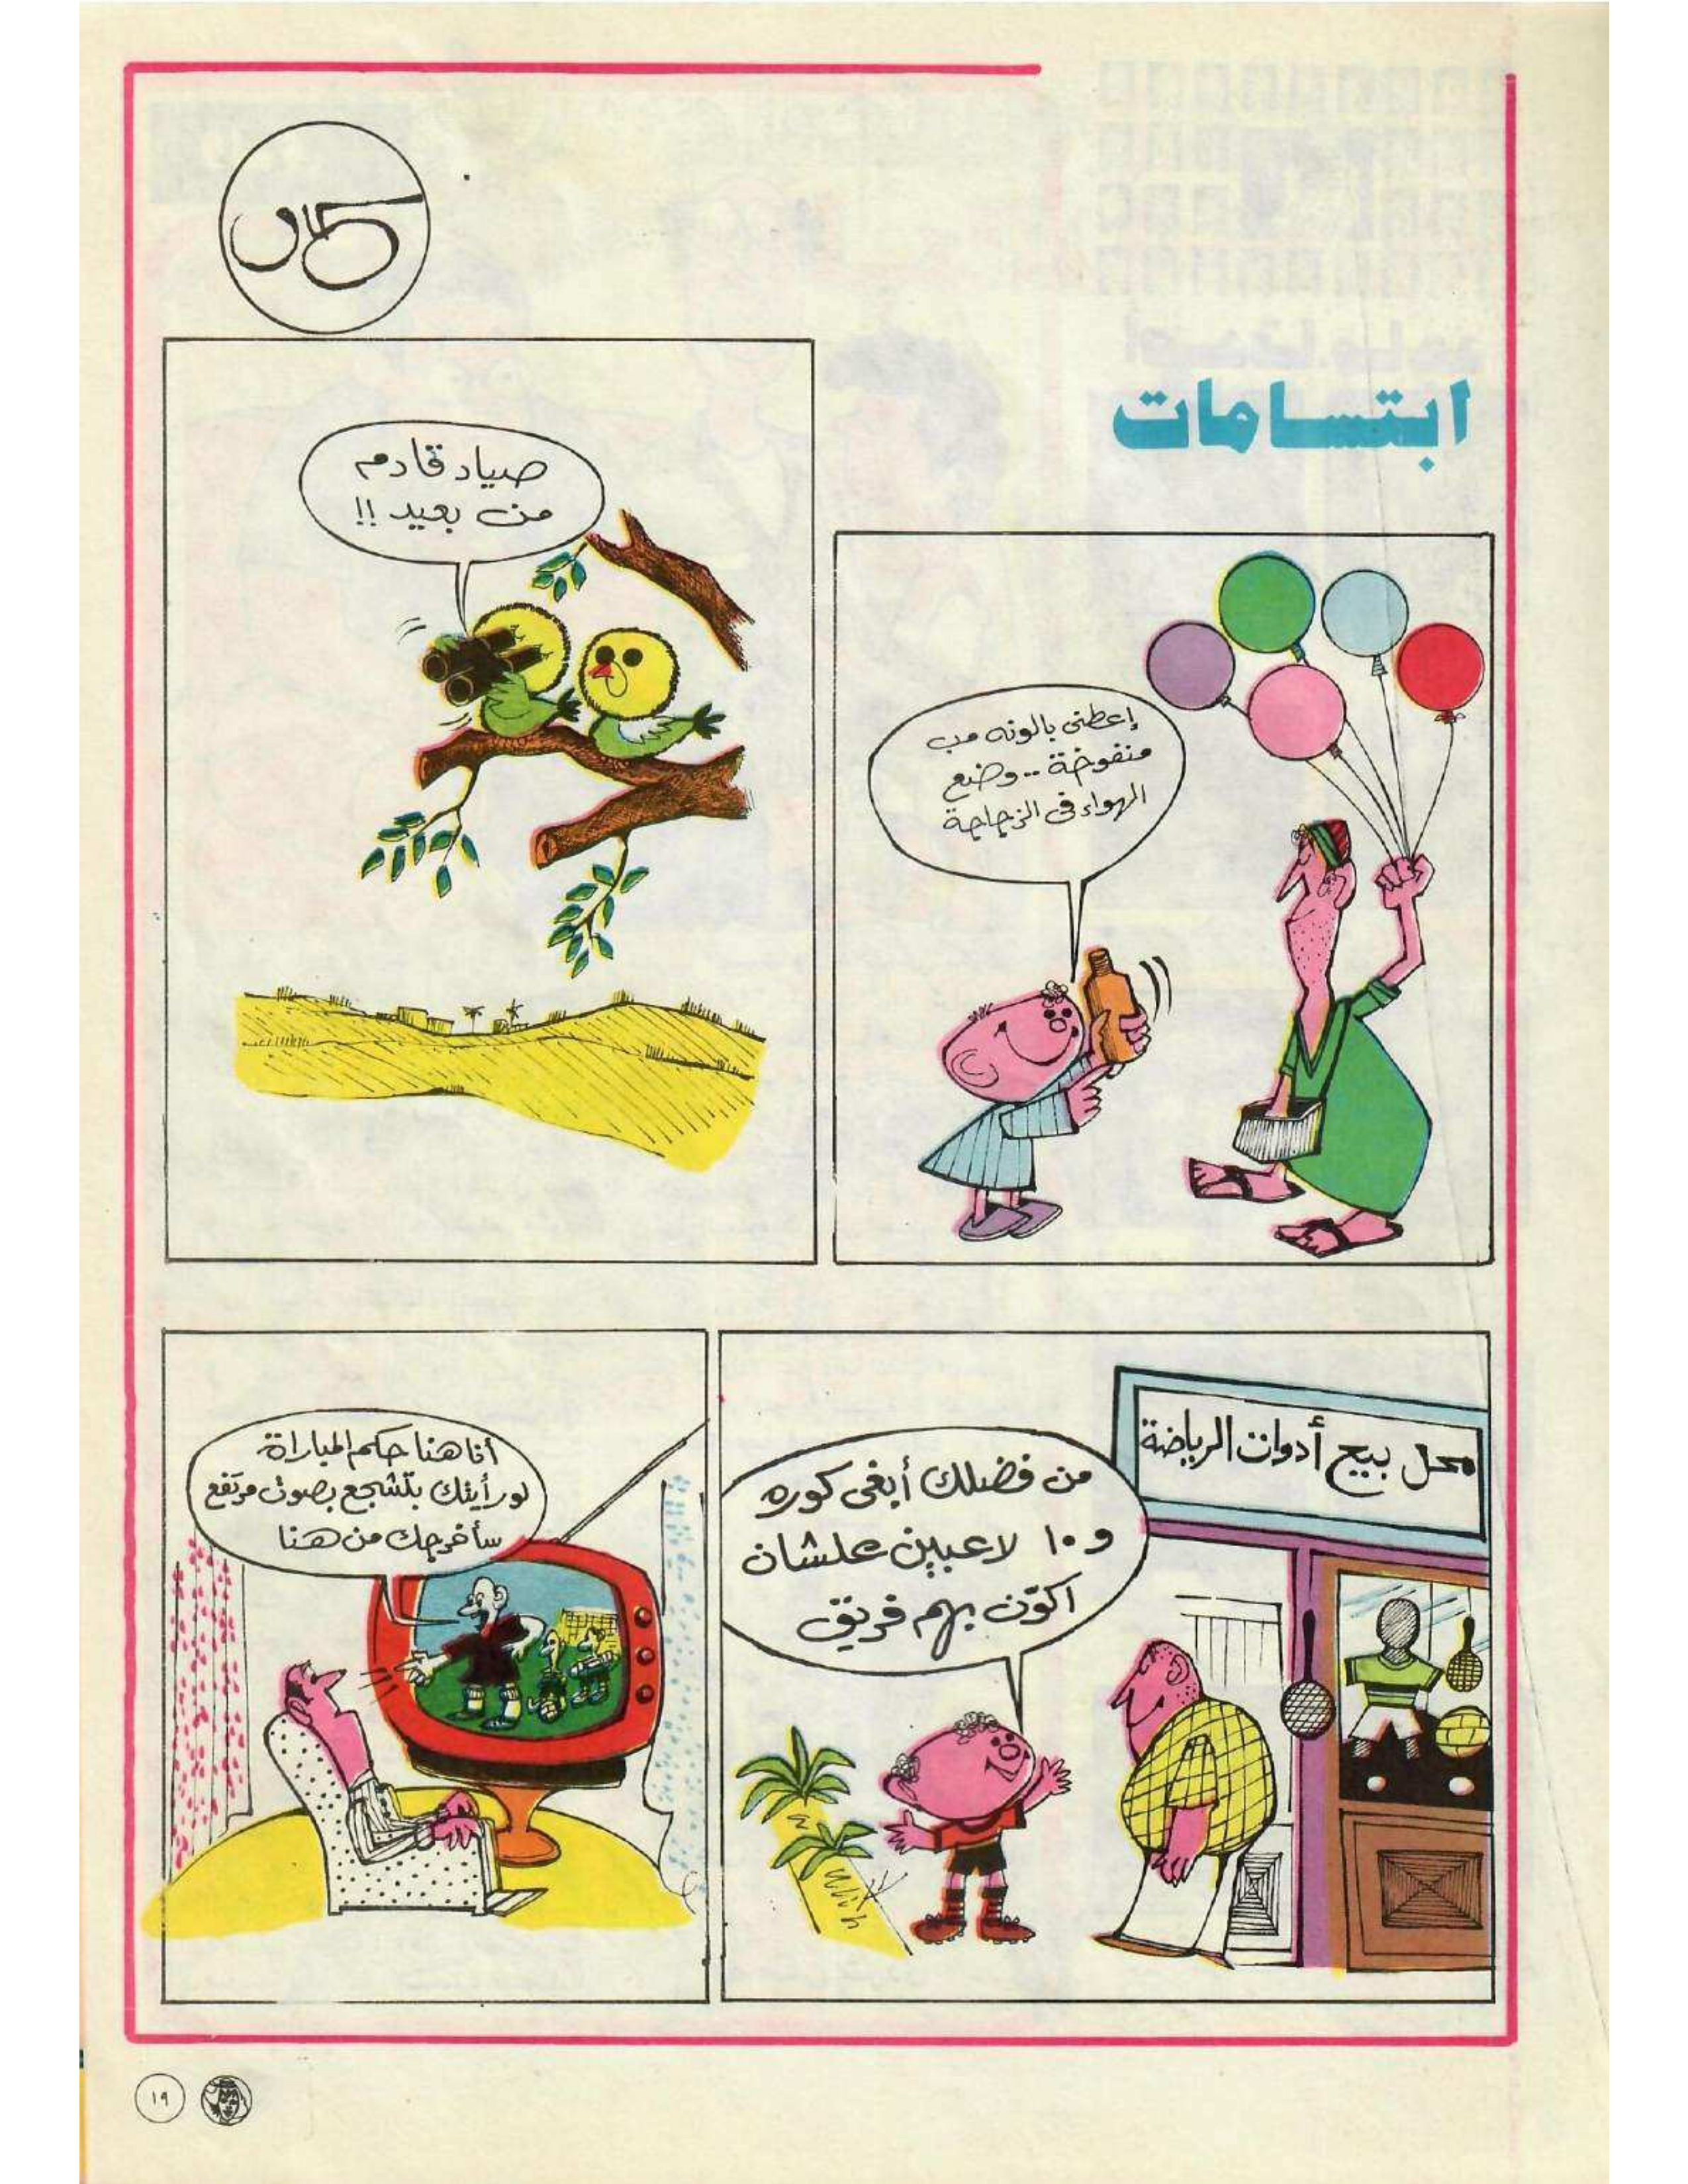 ابتسامات
إعطنى بالونه مب
منفوخة .. وضع
الهواء فى الزجاجة
صياد قادم
من بعيد !!
محل بيع أدوات الرياضة
من فضلك أبغى كوره
و ١٠ لاعبين علشان
اكوّن بهم فريق
أنا هنا حكم المباراة
لو رأيتك بتشجع بصوت مرتفع
سأخرجك من هنا
١٩